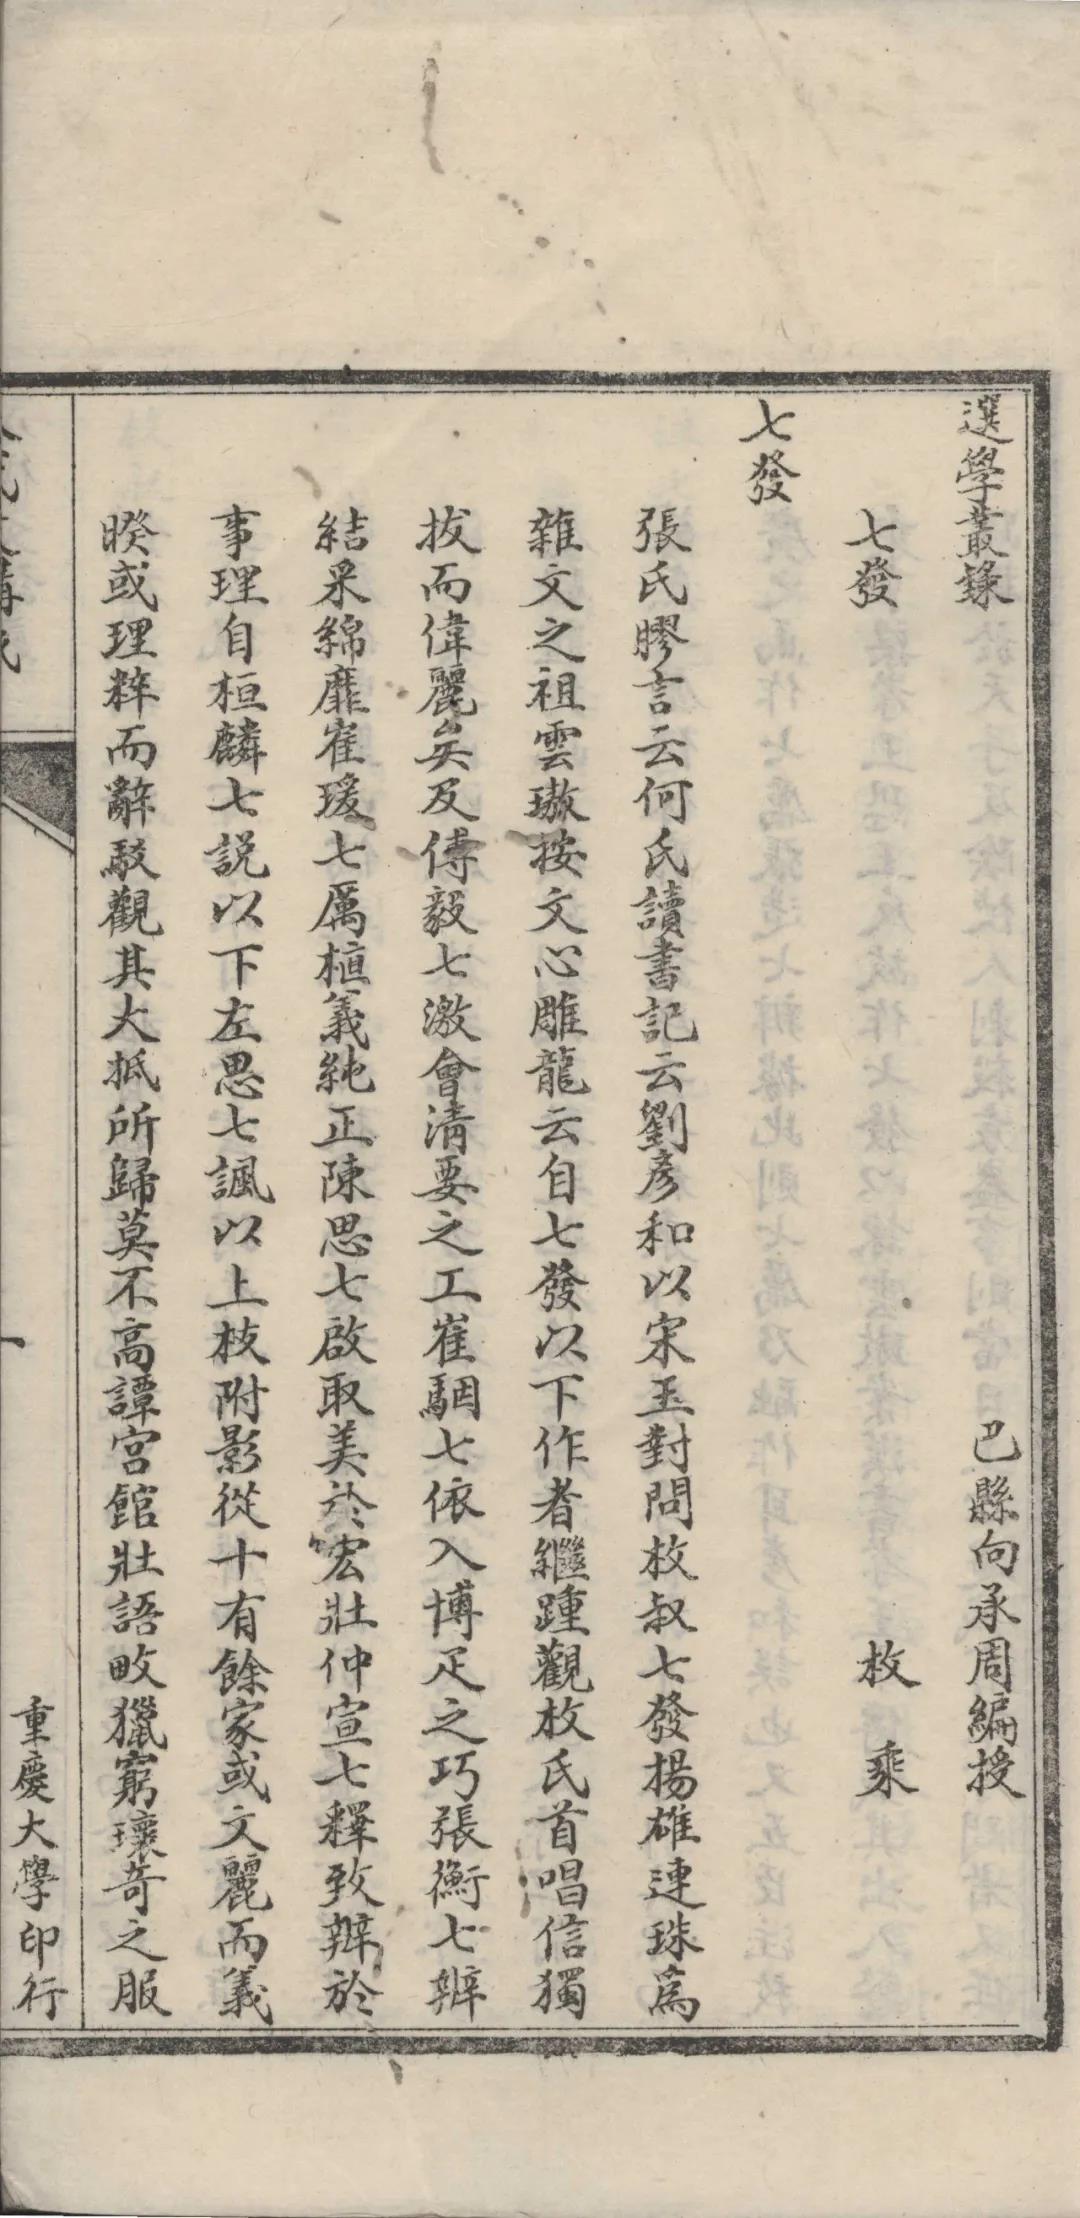 選學叢錄
巴縣向承周編授
七發
枚乘
七發
張氏膠言云何氏讀書記云劉彥和以宋玉對問枚叔七發揚雄連珠爲
雜文之祖雲璈按文心雕龍云自七發以下作者繼踵觀枚氏首唱信獨
拔而偉麗矣及傅毅七激會清要之工崔駰七依入博疋之巧張衡七辨
結采綿靡崔瑗七厲植義純正陳思七啟取美於宏壯仲宣七釋致辨於
事理自桓麟七說以下左思七諷以上枝附影從十有餘家或文麗而義
睽或理粹而辭駁觀其大抵所歸莫不高譚宮館壯語畋獵窮瓌奇之服
重慶大學印行